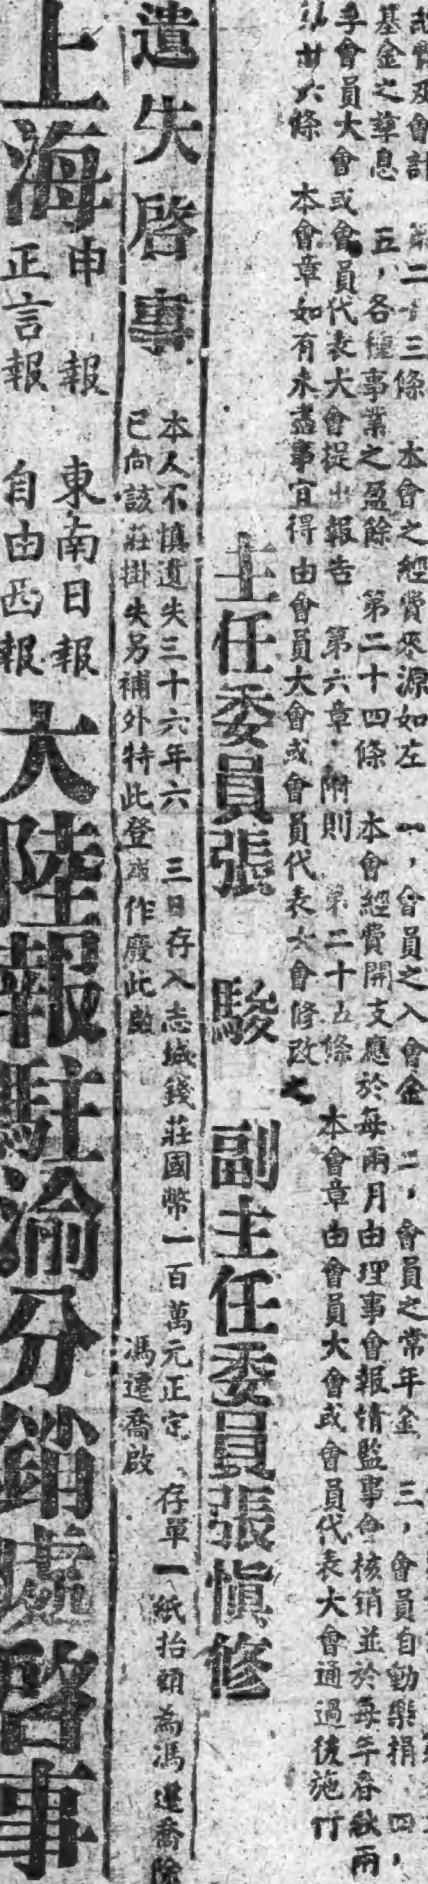 第二十三條　本會之經費來源如左　一，會員之入會金　二，會員之常年金　三，會員自動樂捐　四，
基金之孳息　五，各種事業之盈餘　第二十四條　本會經費開支應於每兩月由理事會報情監事會核銷並於每年春秋兩
季會員大會或會員代表大會提出報告　第六章　附則　第二十五條　本會章由會員大會或會員代表大會通過後施行
條　本會章如有未盡事宜得由會員大會或會員代表大會修改之
主任委員張　駿　副主任委員張慎修
遺失啓事
本人不慎遺失三十六年六　三日存入志城錢莊國幣一百萬元正定　存單一紙抬頭為馮遷喬除
已向該莊掛失另補外特此登　作廢此啟　馮遷喬啟
上海
申報
正言報
東南日報
自由西報
大陸報駐渝分銷處啓事